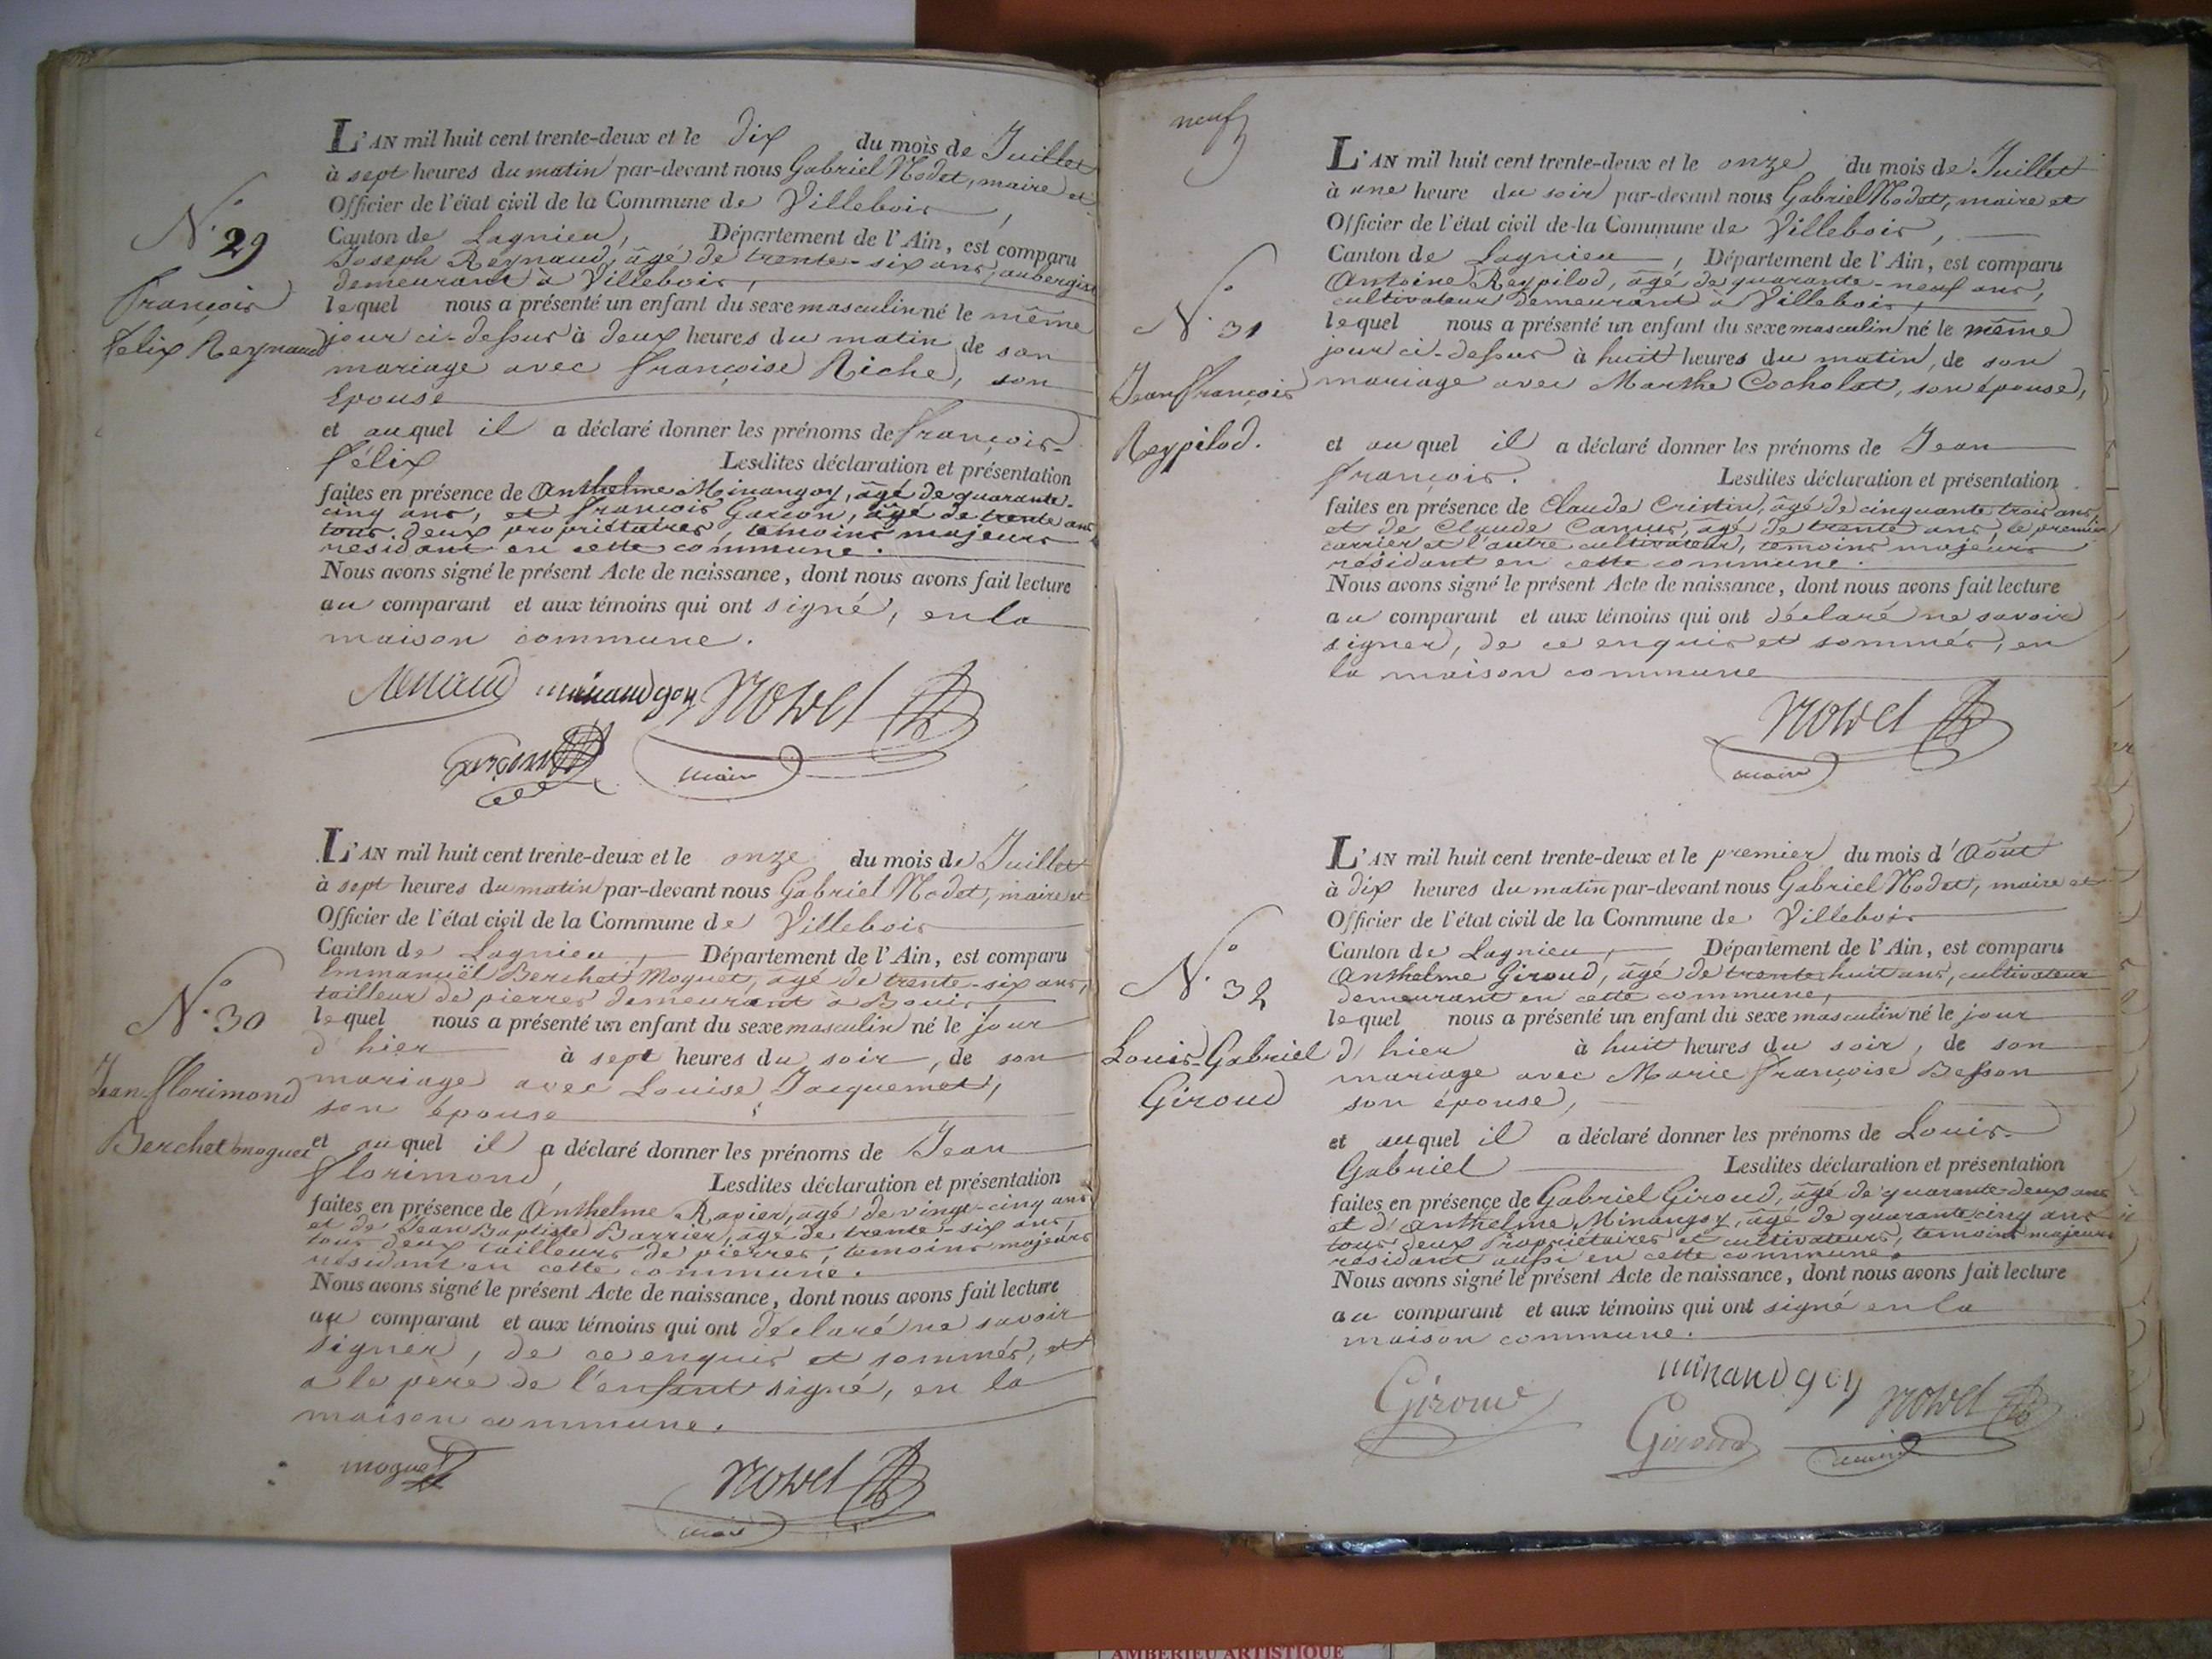 N.° 29
François
Felix Reynaud
L'AN mil huit cent trente-deux et le dix du mois de Juillet
à sept heures du matin par-devant nous Gabriel Nodet, maire et
Officier de l'état civil de la Commune de Villebois,
Canton de Lagnieu, Département de l'Ain, est comparu
Joseph Reynaud, âgé de trente-six ans, aubergiste
demeurant à Villebois,
lequel nous a présenté un enfant du sexe masculin né le même
jour ci-dessus à deux heures du matin de son
mariage avec Françoise Riche, son
épouse
et auquel il a déclaré donner les prénoms de François-
Félix Lesdites déclaration et présentation
faites en présence de Anthelme Minangoy, âgé de quarante-
cinq ans, et François Garcon, âgé de trente ans
tous deux propriétaires, témoins majeurs
résidant en cette commune.
Nous avons signé le présent Acte de naissance, dont nous avons fait lecture
au comparant et aux témoins qui ont signé, en la
maison commune.
minandgoy Nodet
maire
N.° 30
Jean Florimond
Berchet moguet
L'AN mil huit cent trente-deux et le onze du mois de Juillet
à sept heures du matin par-devant nous Gabriel Nodet, maire et
Officier de l'état civil de la Commune de Villebois
Canton de Lagnieu, Département de l'Ain, est comparu
Emmanuël Berchet Moguet, âgé de trente-six ans,
tailleur de pierres demeurant à Bouis,
lequel nous a présenté un enfant du sexe masculin né le jour
d'hier à sept heures du soir, de son
mariage avec Louise Jacquemet,
son épouse
et auquel il a déclaré donner les prénoms de Jean
Florimond, Lesdites déclaration et présentation
faites en présence de Anthelme Ravier, âgé de vingt-cinq ans
et de Jean Baptiste Barrier, âgé de trente-six ans,
tous deux tailleurs de pierres, témoins majeurs
résidant en cette commune.
Nous avons signé le présent Acte de naissance, dont nous avons fait lecture
au comparant et aux témoins qui ont déclaré ne savoir
signer, de ce enquis et sommés, et
a le père de l'enfant signé, en la
maison commune.
moguet Nodet
maire
neuf
N.° 31
Jean François
Reypilod.
L'AN mil huit cent trente-deux et le onze du mois de Juillet
à une heure du soir par-devant nous Gabriel Nodet, maire et
Officier de l'état civil de la Commune de Villebois,
Canton de Lagnieu, Département de l'Ain, est comparu
Antoine Reypilod, âgé de quarante-neuf ans,
cultivateur demeurant à Villebois,
lequel nous a présenté un enfant du sexe masculin né le même
jour ci-dessus à huit heures du matin, de son
mariage avec Marthe Cocholat, son épouse,
et auquel il a déclaré donner les prénoms de Jean
François. Lesdites déclaration et présentation
faites en présence de Claude Cristin, âgé de cinquante trois ans,
et de Claude Camus, âgé de trente ans, le premier
carrier et l'autre cultivateur, témoins majeurs
résidant en cette commune.
Nous avons signé le présent Acte de naissance, dont nous avons fait lecture
au comparant et aux témoins qui ont déclaré ne savoir
signer, de ce enquis et sommés, en
la maison commune
Nodet
maire
N.° 32
Louis-Gabriel
Giroud
L'AN mil huit cent trente-deux et le premier du mois d'Août
à dix heures du matin par-devant nous Gabriel Nodet, maire et
Officier de l'état civil de la Commune de Villebois
Canton de Lagnieu, Département de l'Ain, est comparu
Anthelme Giroud, âgé de trente huit ans, cultivateur
demeurant en cette commune,
lequel nous a présenté un enfant du sexe masculin né le jour
d'hier à huit heures du soir, de son
mariage avec Marie Françoise Besson
son épouse,
et auquel il a déclaré donner les prénoms de Louis-
Gabriel Lesdites déclaration et présentation
faites en présence de Gabriel Giroud, âgé de quarante-deux ans
et d'Anthelme Minangoy, âgé de quarante-cinq ans
tous deux Propriétaires et cultivateurs, témoins majeurs
résidant aussi en cette commune.
Nous avons signé le présent Acte de naissance, dont nous avons fait lecture
au comparant et aux témoins qui ont signé en la
maison commune.
Giroud minandgoy
Giroud Nodet
maire
AMBERIEU ARTISTIQUE